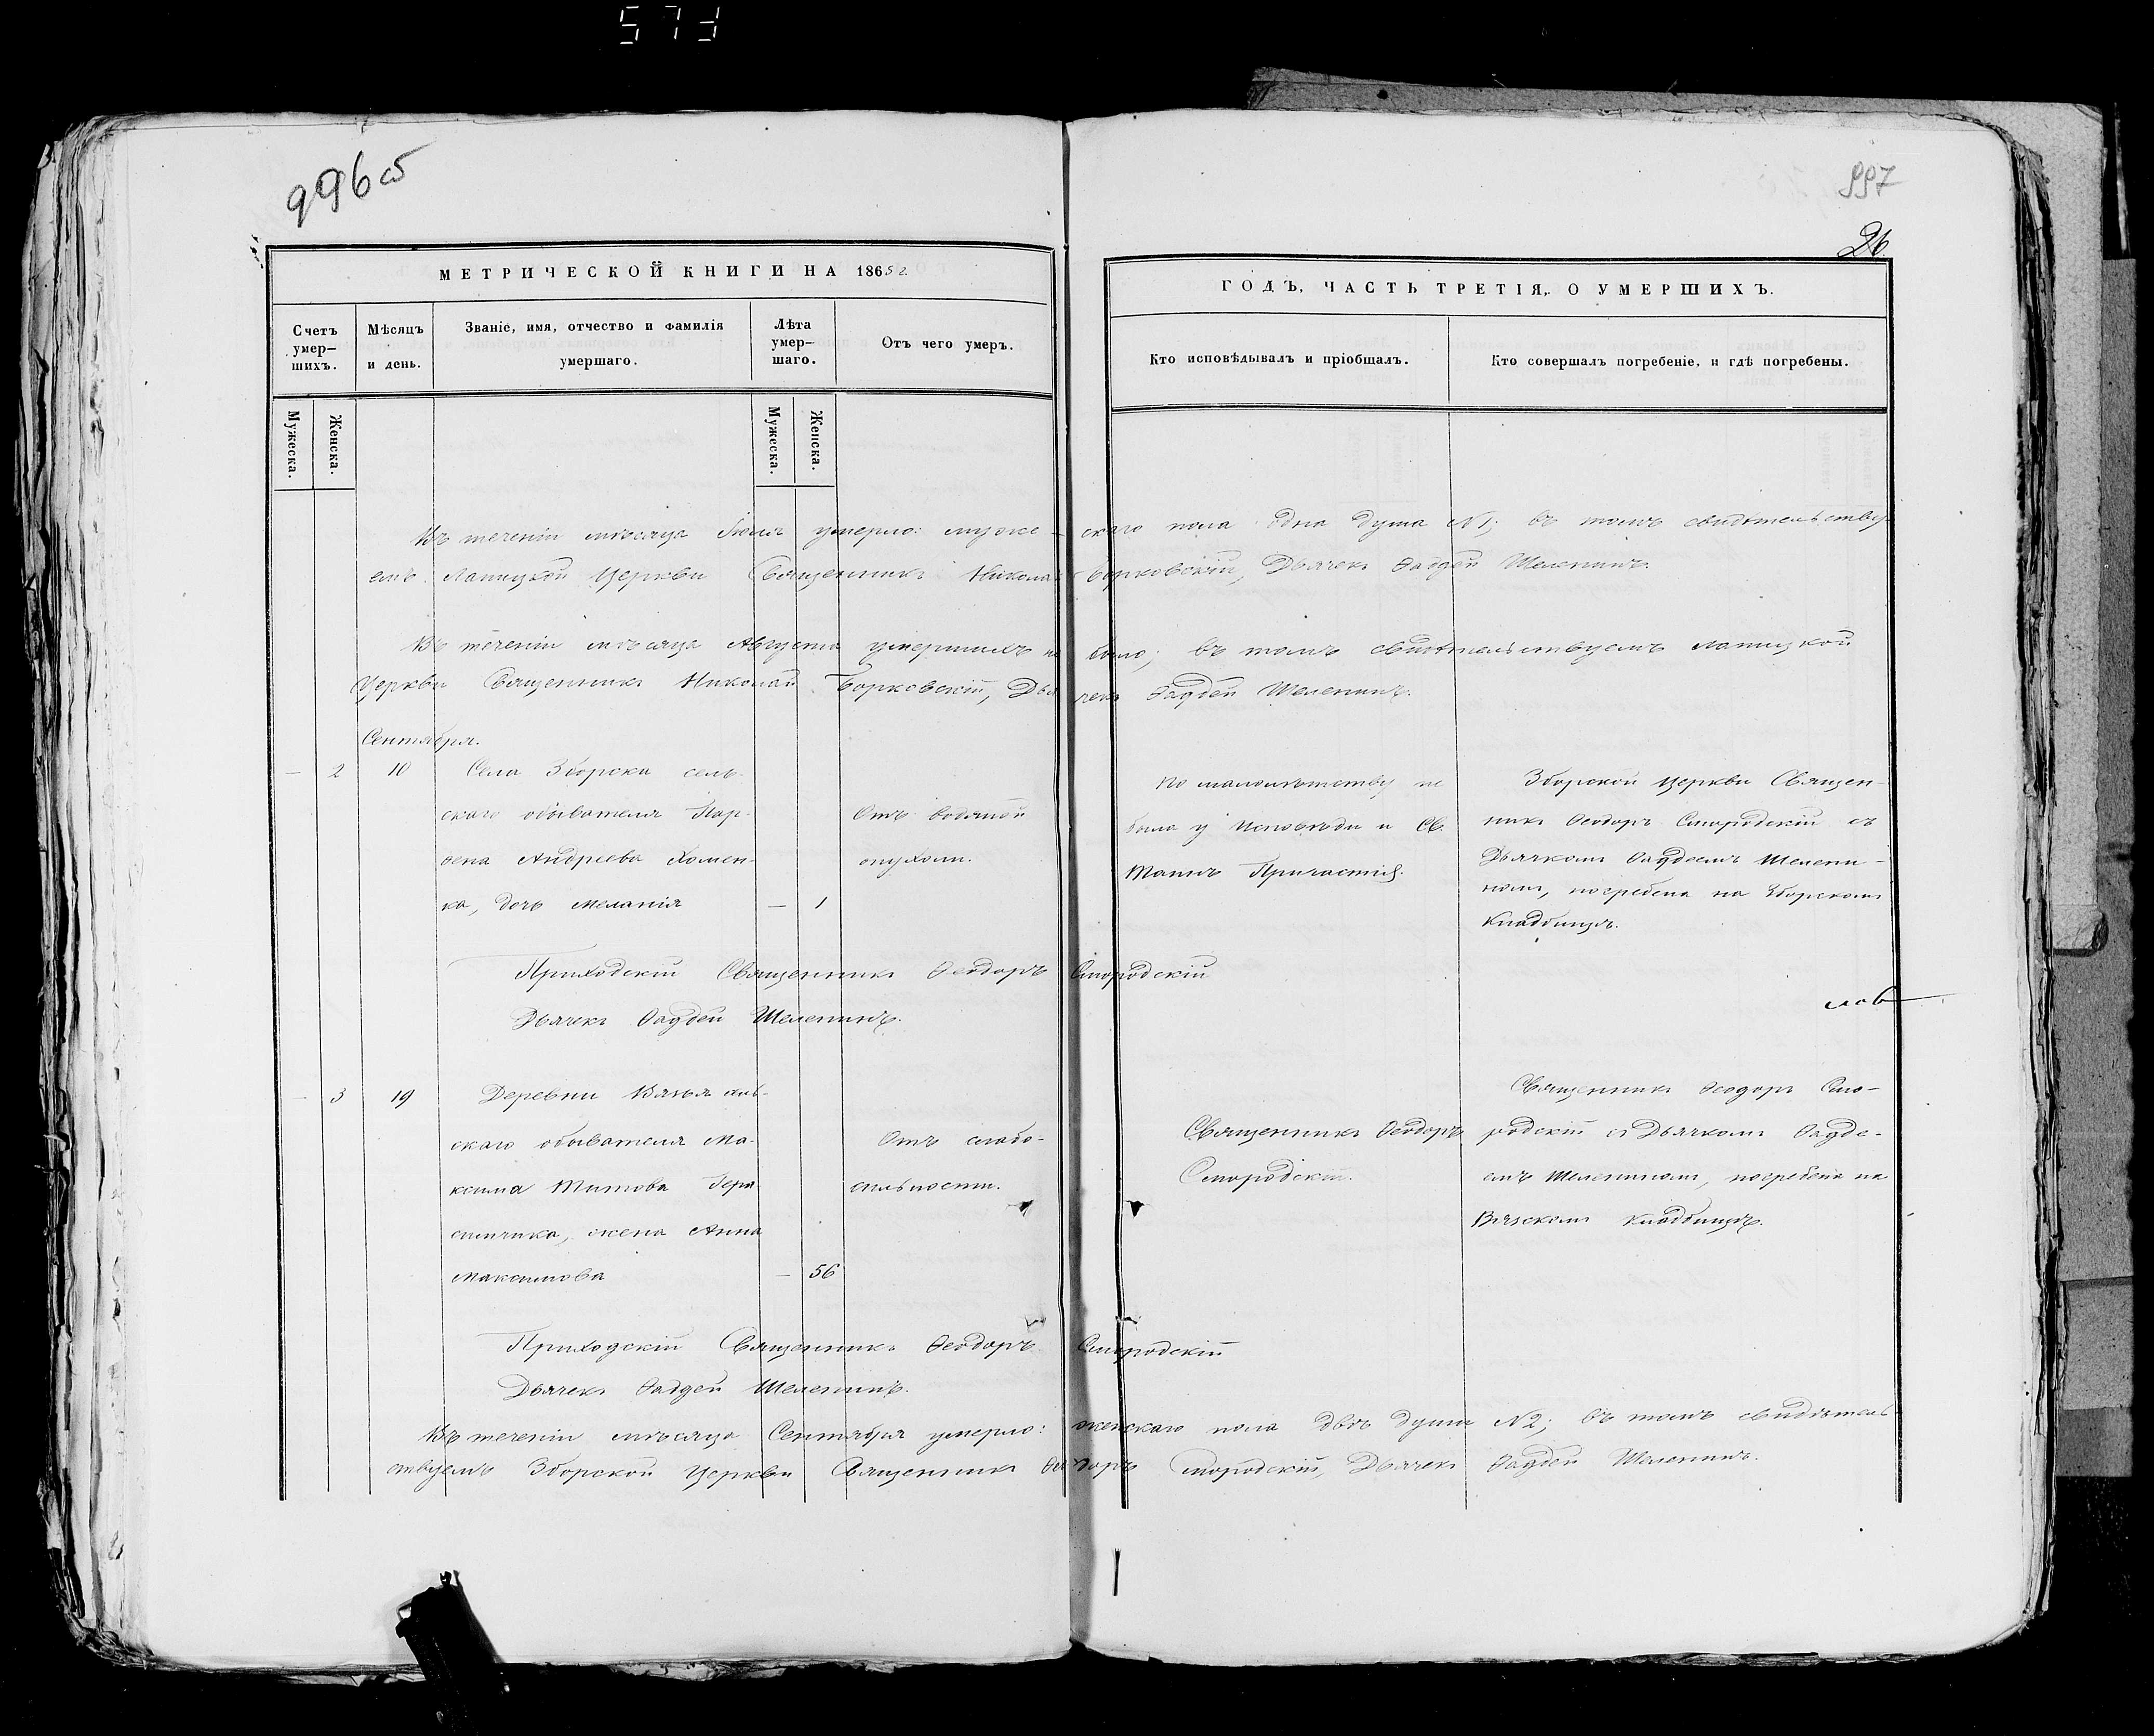 573
996 об
МЕТРИЧЕСКОЙ КНИГИ НА 1865 г.
Счетъ умер-шихъ.
Мѣсяцъ и день.
Званіе, имя, отчество и фамилія умершаго.
Лѣта умер-шаго.
Отъ чего умеръ.
Мужеска.
Женска.
Мужеска.
Женска.
997
26.
ГОДЪ, ЧАСТЬ ТРЕТІЯ, О УМЕРШИХЪ.
Кто исповѣдывалъ и пріобщалъ.
Кто совершалъ погребеніе, и гдѣ погребены.
Въ теченіи мѣсяца Іюля умерло: муже-скаго пола одна душа №1; въ томъ свидѣтельству-
емъ: Лапицкой Церкви Священникъ Николай Борковскій, Дьячекъ Фаддей Шелепинъ.
Въ теченіи мѣсяца Августа умершихъ не было; въ томъ свидѣтельствуемъ Лапицкой
Церкви Священникъ Николай Борковскій, Дьячекъ Фаддей Шелепинъ.
Сентября.
— 2 10 Села Зборска сель-
скаго обывателя Пар-
фена Андреева Хомен-
ка, дочь Меланія — 1
Отъ водяной
опухоли.
По малолѣтству не
была у Исповѣди и Св.
Таинъ Причастія.
Зборской Церкви Священ-
никъ Феодоръ Смородскій съ
Дьячкомъ Фаддеемъ Шелепи-
номъ, погребена на Зборскомъ
Кладбищѣ.
Приходскій Священникъ Феодоръ Смородскій
Дьячекъ Фаддей Шелепинъ.
— 3 19 Деревни Вязья сель-
скаго обывателя Ма-
ксима Титова Гера-
симчика, жена Анна
Максимова — 56
Отъ слабо-
сильности.
Священникъ Феодоръ
Смородскій.
Священникъ Феодоръ Смо-
родскій съ Дьячкомъ Фадде-
емъ Шелепиномъ, погребена на
Вязскомъ Кладбищѣ.
Приходскій Священникъ Феодоръ Смородскій
Дьячекъ Фаддей Шелепинъ.
Въ теченіи мѣсяца Сентября умерло: женскаго пола двѣ души №2; въ томъ свидѣтель-
ствуемъ Зборской Церкви Священникъ Феодоръ Смородскій, Дьячекъ Фаддей Шелепинъ.